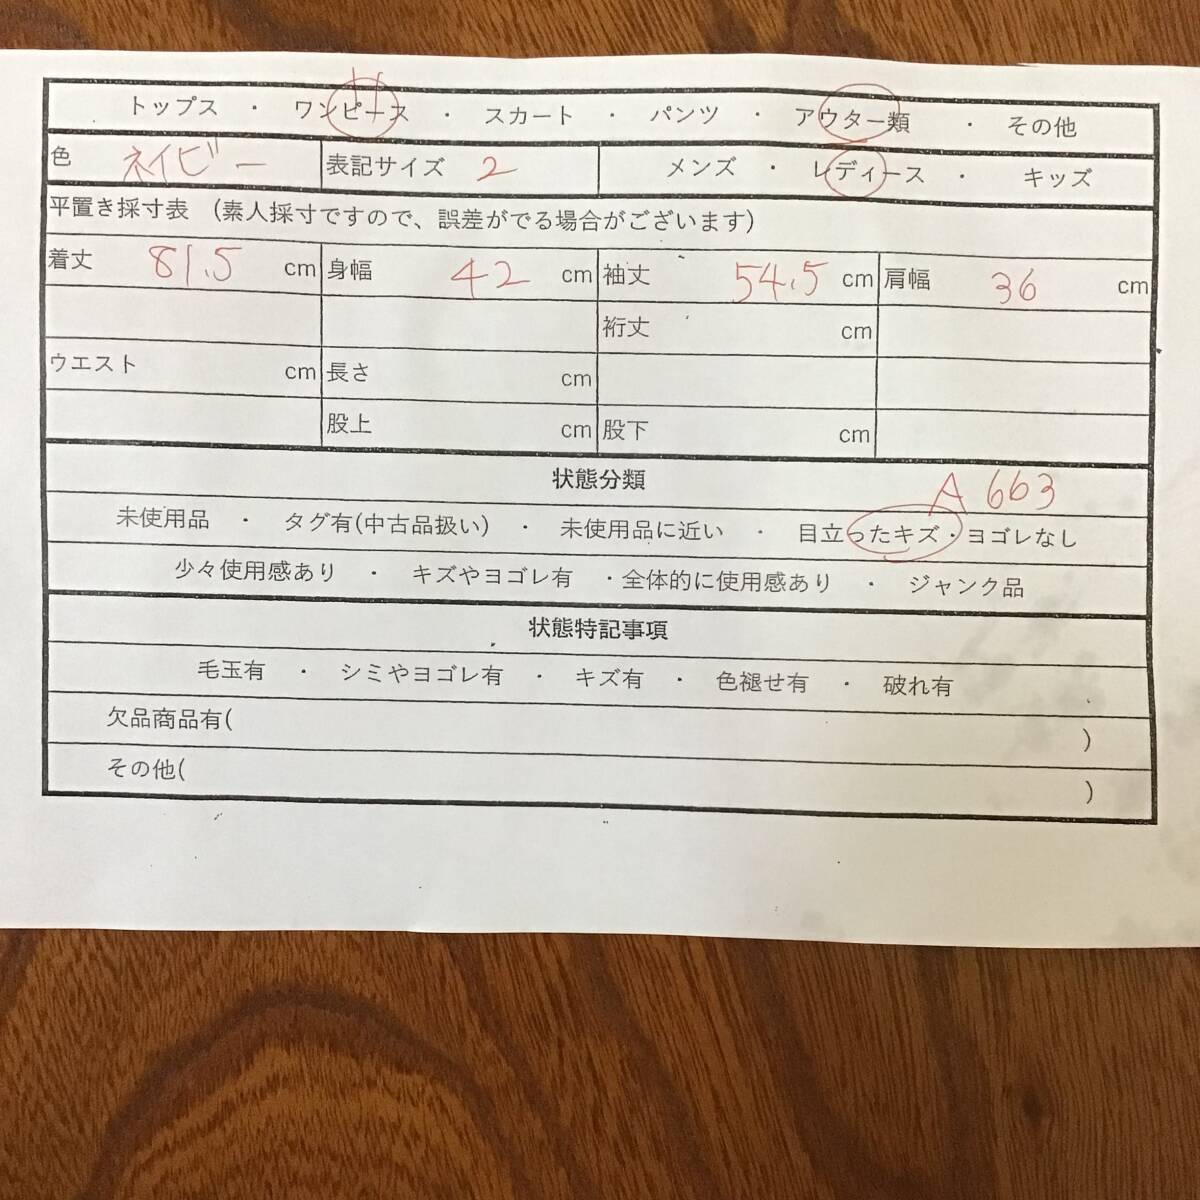 トップス ・ ワンピース ・ スカート ・ パンツ ・ アウター類 ・ その他
色 ネイビー 表記サイズ 2 メンズ ・ レディース ・ キッズ
平置き採寸表 (素人採寸ですので、誤差がでる場合がございます)
着丈 81.5 cm 身幅 42 cm 袖丈 54.5 cm 肩幅 36 cm
裄丈 cm
ウエスト cm 長さ cm
股上 cm 股下 cm
状態分類 A 663
未使用品 ・ タグ有(中古品扱い) ・ 未使用品に近い ・ 目立ったキズ・ヨゴレなし
少々使用感あり ・ キズやヨゴレ有 ・全体的に使用感あり ・ ジャンク品
状態特記事項
毛玉有 ・ シミやヨゴレ有 ・ キズ有 ・ 色褪せ有 ・ 破れ有
欠品商品有( )
その他( )